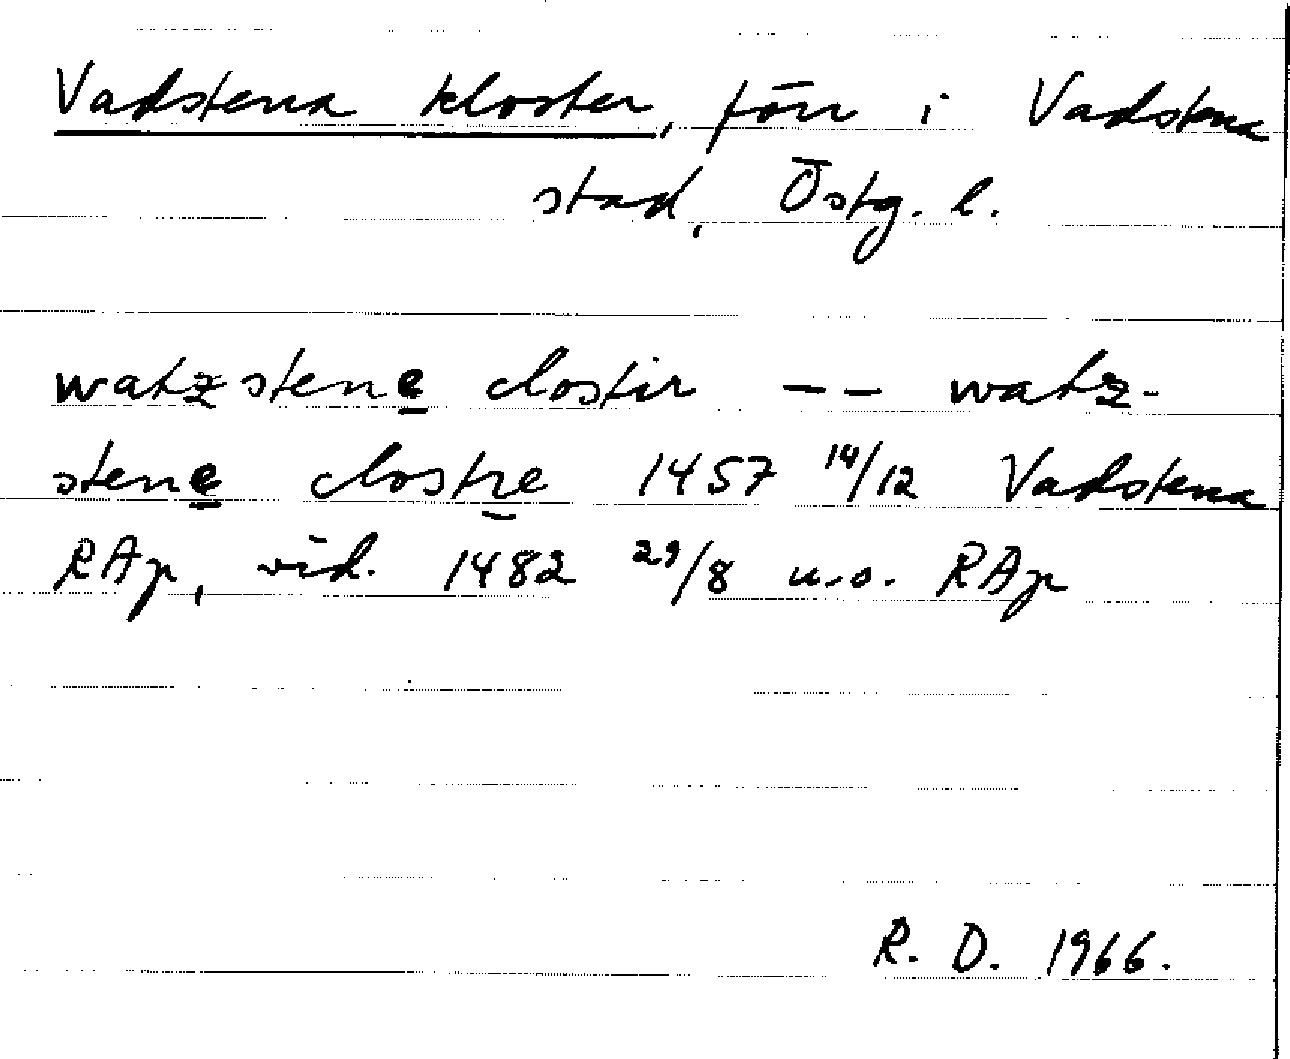 Vadstena kloster, förr i Vadstena
stad, Östg. l.
watzstene clostir -- watz-
stene clostre 1457 14/12 Vadstena
RAp, vid. 1482 29/8 u.o. RAp
R. D. 1966.